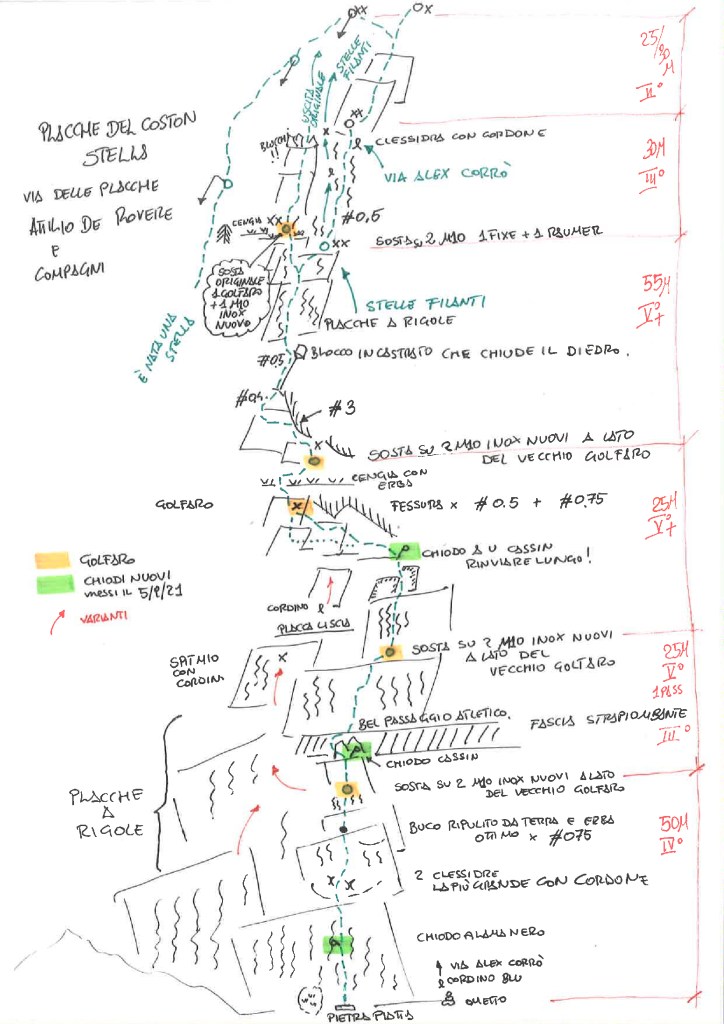 XX
X
25/30 M
II°
STELLE FILANTI
USCITA ORIGINALE
PLACCHE DEL COSTON
STELLA
VIA DELLE PLACCHE
ATILIO DE ROVERE
E
COMPAGNI
BLOCCHI!!
XX
X
CLESSIDRA CON CORDONE
VIA ALEX CORRÒ
30M
III°
#0,5
CENGIA XX
XX
SOSTA SU 2 M10 1 FIXE + 1 RAUMER
SOSTA
ORIGINALE
1 GOLFARO
+ 1 M10
INOX
NUOVO
STELLE FILANTI
PLACCHE A RIGOLE
55M
V°+
È NATA UNA STELLA
#0.5
BLOCCO INCASTRATO CHE CHIUDE IL DIEDRO.
#0.4
#3
X
SOSTA SU 2 M10 INOX NUOVI A LATO
DEL VECCHIO GOLFARO
CENGIA CON
ERBA
GOLFARO
X
FESSURA X #0.5 + #0.75
25M
V°+
CHIODO A U CASSIN
RINVIARE LUNGO!
GOLFARO
CHIODI NUOVI
MESSI IL 5/9/21
VARIANTI
CORDINO
PLACCA LISCIA
SOSTA SU 2 M10 INOX NUOVI
A LATO DEL
VECCHIO GOLFARO
25M
V°
1 PASS
III°
CON
CORDINI
X
BEL PASSAGGIO ATLETICO.
FASCIA STRAPIOMBANTE
CHIODO CASSIN
SOSTA SU 2 M10 INOX NUOVI A LATO
DEL VECCHIO GOLFARO
PLACCHE
A
RIGOLE
BUCO RIPULITO DA TERRA E ERBA
OTTIMO X #075
50M
IV°
2 CLESSIDRE
LA PIÙ GRANDE CON CORDONE
X X
CHIODO A LAMA NERO
VIA ALEX CORRÒ
CORDINO BLU
OMETTO
PIETRA PIATTA